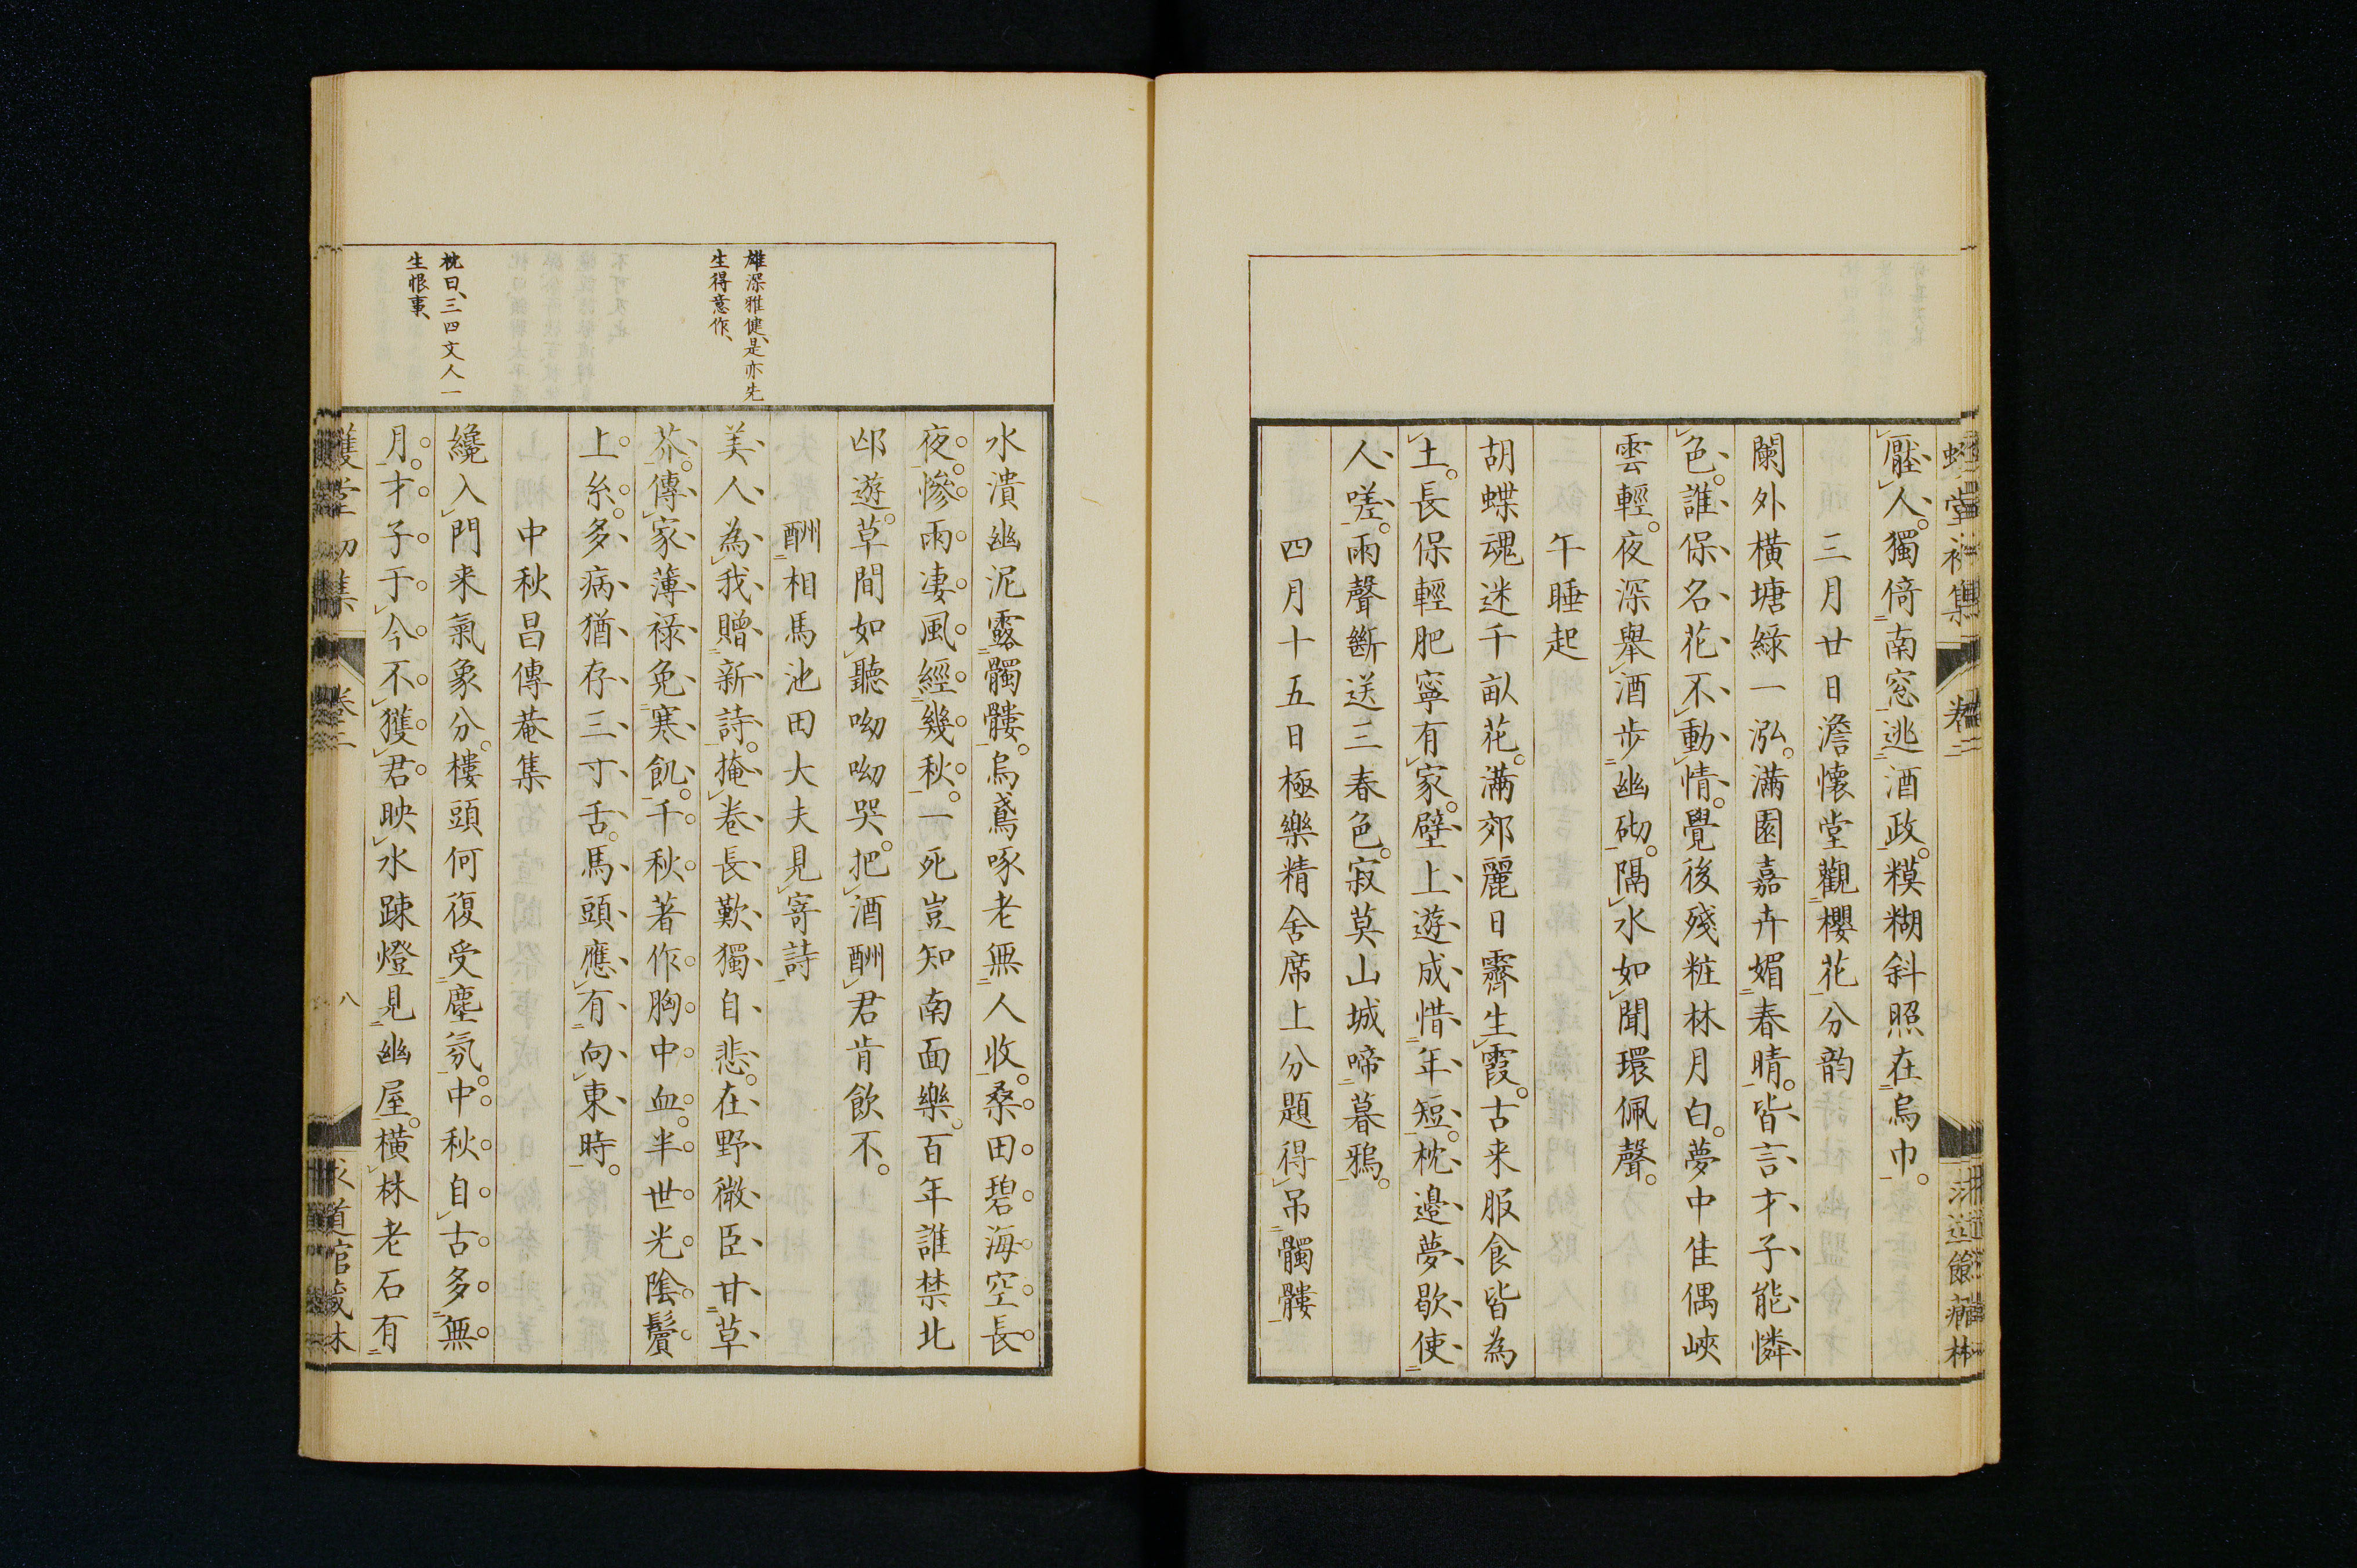 壓人。獨倚南窓逃酒政。糢糊斜照在烏巾。
三月廿日澹懷堂觀櫻花分韵
闌外橫塘綠一泓。滿園嘉卉媚春晴。皆言才子能憐
色。誰保名花不動情。覺後殘粧林月白。夢中佳偶峽
雲輕。夜深舉酒步幽砌。隔水如聞環佩聲。
午睡起
胡蝶魂迷千畝花。滿郊麗日霽生霞。古来服食皆為
土。長保輕肥寧有家。壁上遊成惜年短。枕邊夢歇使
人嗟。雨聲斷送三春色。寂莫山城啼暮鴉。
四月十五日極樂精舍席上分題得吊髑髏
水潰幽泥露髑髏。烏鳶啄老無人收。桑田碧海空長
夜。慘雨凄風經幾秋。一死豈知南面樂。百年誰禁北
邙遊。草間如聽呦呦哭。把酒酬君肯飲不。
酬相馬池田大夫見寄詩
美人為我贈新詩。掩卷長歎獨自悲。在野微臣甘草
芥。傳家薄祿免寒飢。千秋著作胸中血。半世光陰鬢
上糸。多病猶存三寸舌。馬頭應有向東時。
中秋昌傳菴集
纔入門来氣象分。樓頭何復受塵氛。中秋自古多無
月。才子于今不獲君。映水疎燈見幽屋。橫林老石有
卷二
八
雄深雅健、是亦先
生得意作、
枕曰、三四文人一
生恨事、